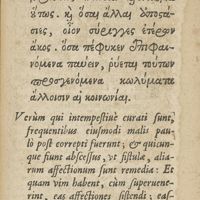 ὕτως. κỳ ὅσαι ἄλλαι ὑποστά-
σιες, οἷον σύριγγες ἑτέρου
ἄκος. ὅσα πέφυκεν ἐπιφαι-
νόμενα παύειν, ῥύεται τούτων
προσγενόμενα κωλύματα
ἀλλοῖοιν αἱ κοινωνίαι.
Verùm qui intempestiuè curati sunt,
frequentibus eiusmodi malis pau-
lò post correpti fuerunt; & quicun-
que fiunt abscessus, vt fistulæ, alia-
rum affectionum sunt remedia: Et
quam vim habent, cùm superuene-
rint, eas affectiones sistendi; eas-